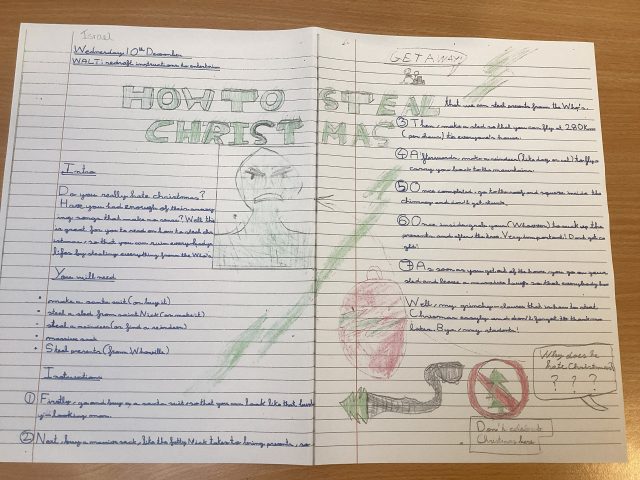 Israel
Wednesday 10th December
WALT: redraft instructions to entertain
HOW TO STEAL
CHRISTMAS
Intro
Do you really hate christmas?
Have you had enough of their annoy
ing songs that make no sense? Well this
is great for you to read on how to steal chr
istmas, so that you can ruin everybodys
lifes by stealing everything from the Who's
You will need
• make a santa suit (or buy it)
• steal a sled from saint Nick (or make it)
• steal a reindeer (or find a reindeer)
• massive sack
• Steal presents (from Whoville)
Instructions
① Firstly, go and buy a santa suit, so that you can look like that
looking man.
② Next, buy a massive sack, like the fatty Nick takes to bring presents, so
GETAWAY
that we can steal presents from the Who's.
③ Then, make a sled so that you can fly at 280Km
(per hour) to everyone's house.
④ Afterwards, make a reindeer (like dog or cat) to fly
carry you back to the mountains.
⑤ Once completed, go to the roof and squeeze inside the
chimney and don't get stuck.
⑥ Once inside, grab your and suck up the
presents and after the tree. Very important! Dont get ca
ght!
⑦ As soon as you get out of the house, you go on your
sled and leave a massive laugh so that everybody
Well, my grinchy-classes that where to steal
Christmas easily and don't forget to thank me
later. Bye, my students!
Why does he
hate Christmas?
? ? ?
Don't celebrate
Christmas here